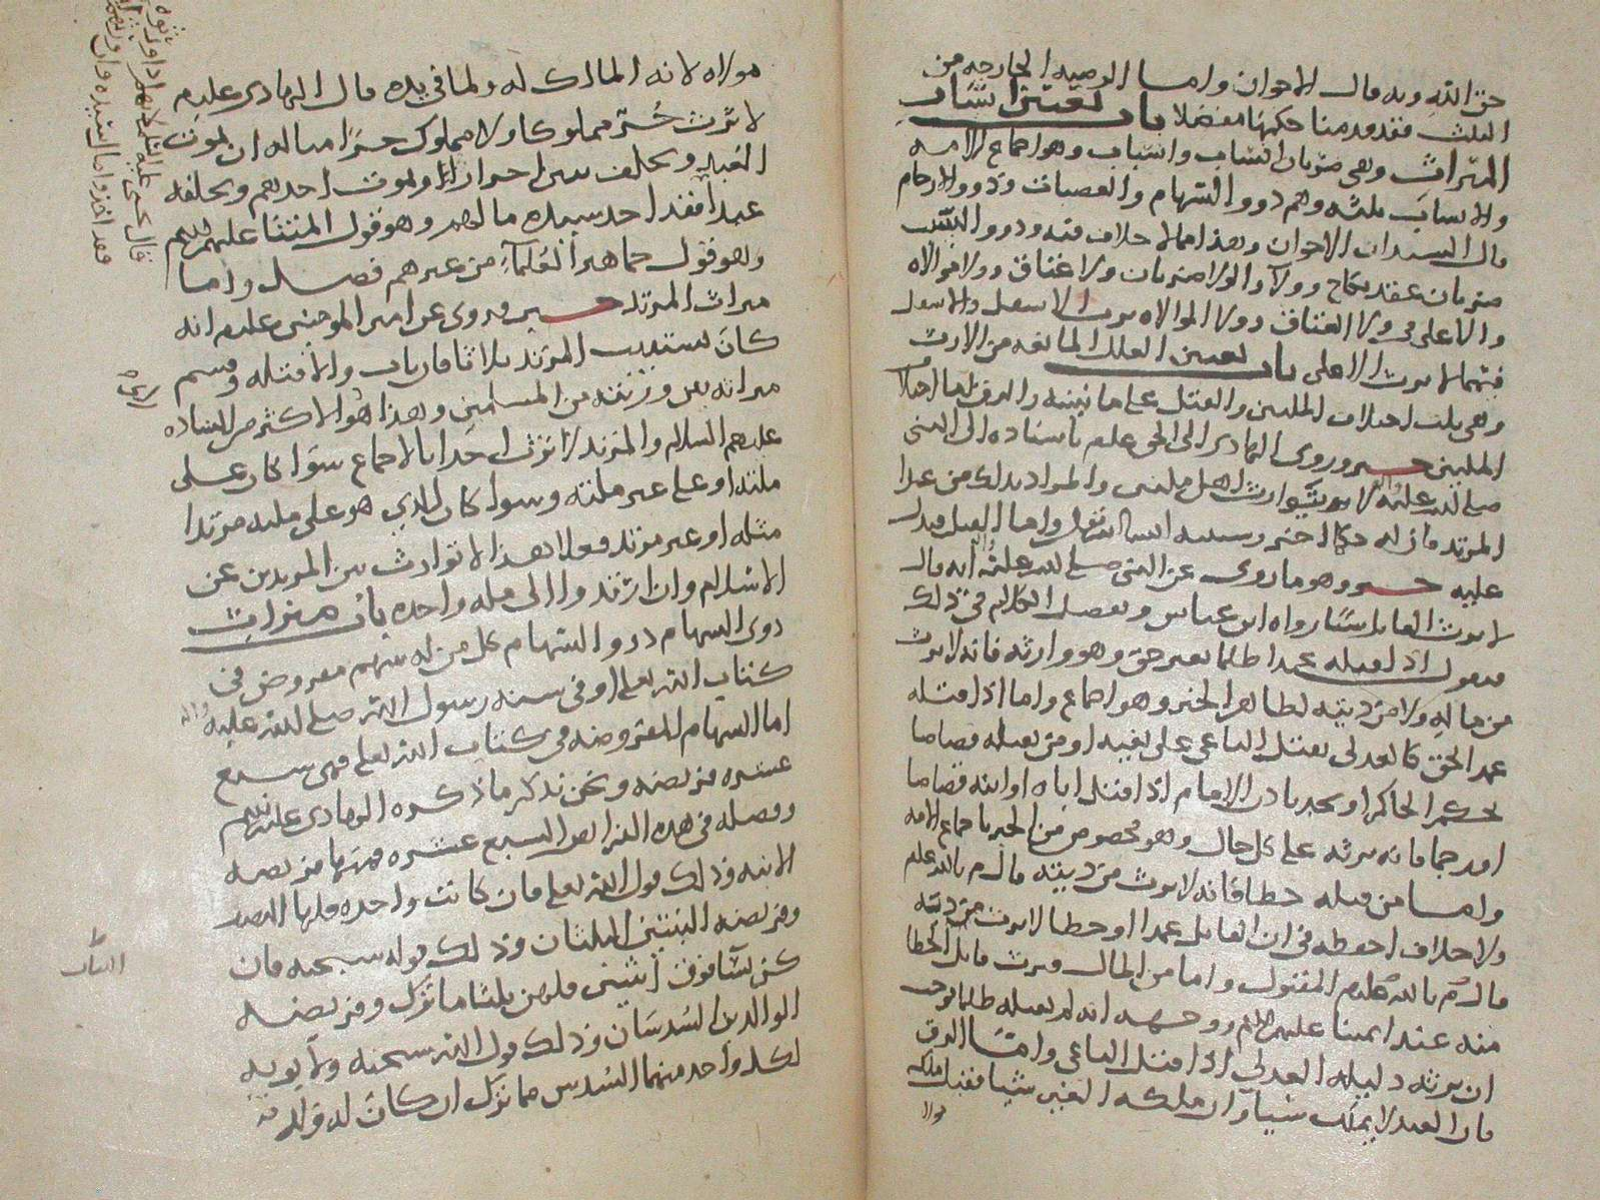 حق الله وبه قال الاخوان واما الوصيه الخارجه من
الثلث فقد قدمنا حكمها مفصلا باب تعيين اسباب
الميراث وهي ضربان انساب واسباب وهو اجماع الامه
والانساب ثلثه وهم ذووا السهام والعصبات وذووا الارحام
قال السيدان الاخوان وهذا مما لا خلاف فيه وذووا السبب
ضربان عقد نكاح وولا والولا ضربان ولا عتاق وولا موالاه
والاعلى في ولا العتاق وولا الموالاه يرث الاسفل والاسفل
فيهما لا يرث الاعلى باب تعيين العلل المانعه من الارث
وهي ثلث اختلاف الملتين والقتل على ما نبينه والرق اما اختلاف
الملتين خبر وروى الهادي الى الحق عليم باسناده الى النبي
صلى الله عليه واله لا يتوارث اهل ملتين والمراد بذلك من عدا
المرتد فان له حكما اخر وسنبينه ان شا الله تعالى واما القتل فيدل
عليه خبر وهو ما روي عن النبي صلى الله عليه واله انه قال
لا يرث القاتل شيا رواه ابن عباس وتفصيل الكلام في ذلك
فنقول اذا قتله عمدا ظلما بغير حق وهو وارثه فانه لا يرث
من ماله ولا من ديته لظاهر الخبر وهو اجماع واما اذا قتله
عمد الحق كالعدلي يقتل الباغي على بغيه او من يقتله قصاصا
بحكم الحاكم او بغير باذن الامام اذا قتل اباه او ابنه قصاصا
او رجما فانه يرثه على كل حال وهو مخصوص من الخبر باجماع الامه
واما من قتله خطا فانه لا يرث من ديته قال م بالله عليم
ولا خلاف احفظه في ان القاتل عمدا او خطا لا يرث من ديته
قال م بالله عليم المقتول واما من المال ويرث قاتل الخطا
منه عند ايمتنا عليهم السلم ووجهه انه لم يقتله ظلما فوجب
ان يرثه دليله العدلي اذا قتل الباغي واما الرق
فان العبد لا يملك شيا وان ملكه الغير شيا فقبله ملكه
مولا
مولاه لانه المالك له ولما في يده قال الهادي عليم
لا يرث حر مملوكا ولا مملوك حرا مثاله ان يموت
العبد ويخلف بنين احرارا او يموت احدهم ويخلفه
عبدا فقد احد سيده مالهم وهو قول ائمتنا عليهم السلم
وهو قول جماهير العلماء من غيرهم فصل واما
ميراث المرتد خبر وروي عن امير المومنين عليم انه
كان يستتيب المرتد ثلاثا فان تاب والا قتله وقسم
ميراثه بين ورثته من المسلمين وهذا هو الاكثر من الساده
عليهم السلام والمرتد لا يرث احدا بالاجماع سوا كان على
ملته او على غير ملته وسوا كان الذي هو على ملته مرتدا
مثله او غير مرتد فعلا هذا لا توارث بين المرتدين عن
الاسلام وان ارتدوا الى مله واحده باب ميراث
ذوي السهام ذووا السهام كل من له سهم مفروض في
كتاب الله تعالى او في سنه رسول الله صلى الله عليه واله
اما السهام المفروضه في كتاب الله تعالى فهي سبع
عشره فريضه ونحن نذكر ما ذكره الهادي عليه السلم
وفصله في هذه الفرايض السبع عشره فمنها فريضه
الابنه وذلك قول الله تعالى فان كانت واحده فلها النصف
وفريضه البنتين الثلثان وذلك قوله سبحنه فان
كن نسآ فوق اثنتين فلهن ثلثا ما ترك وفريضه
الوالدين السدسان وذلك قول الله سبحنه ولابويه
لكل واحد منهما السدس مما ترك ان كان له ولد